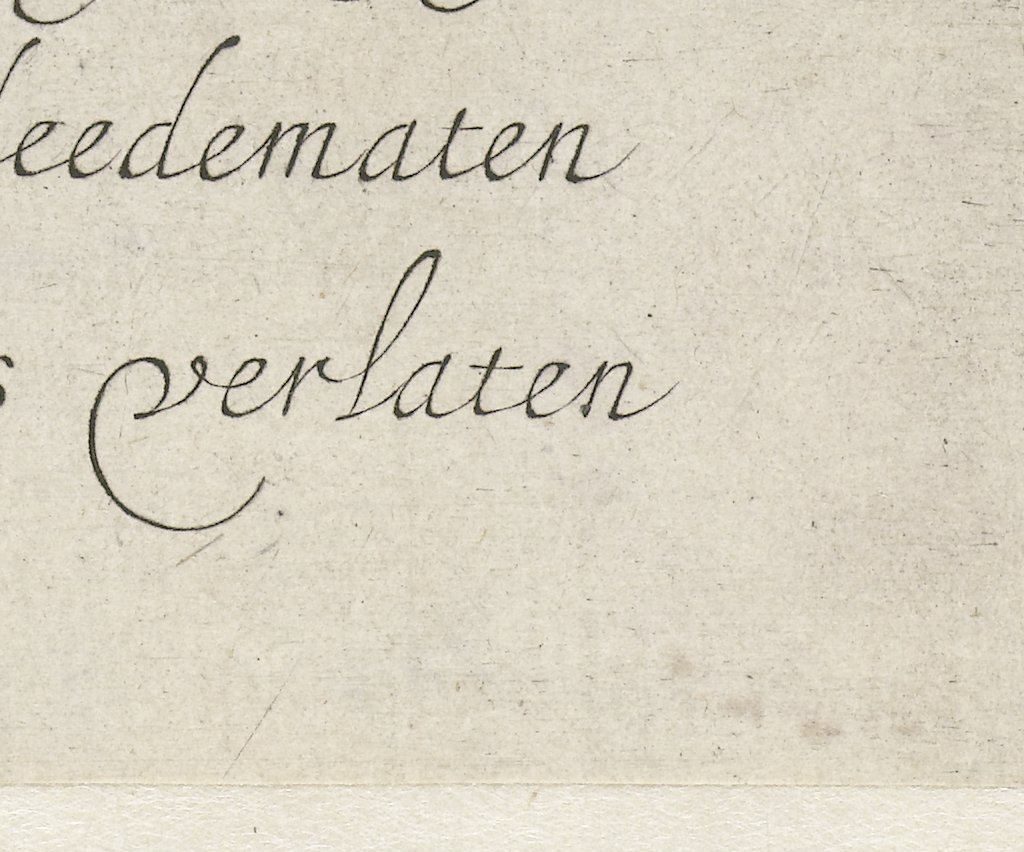 leedematen
s verlaten